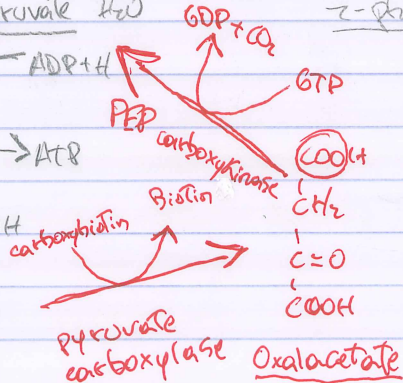 ruvate H2O
GDP + CO2
2-ph
ADP+H
GTP
PEP
carboxykinase
ATP
COOH
Biotin
CH2
H
carboxybiotin
C=O
COOH
pyruvate
carboxylase
Oxalacetate